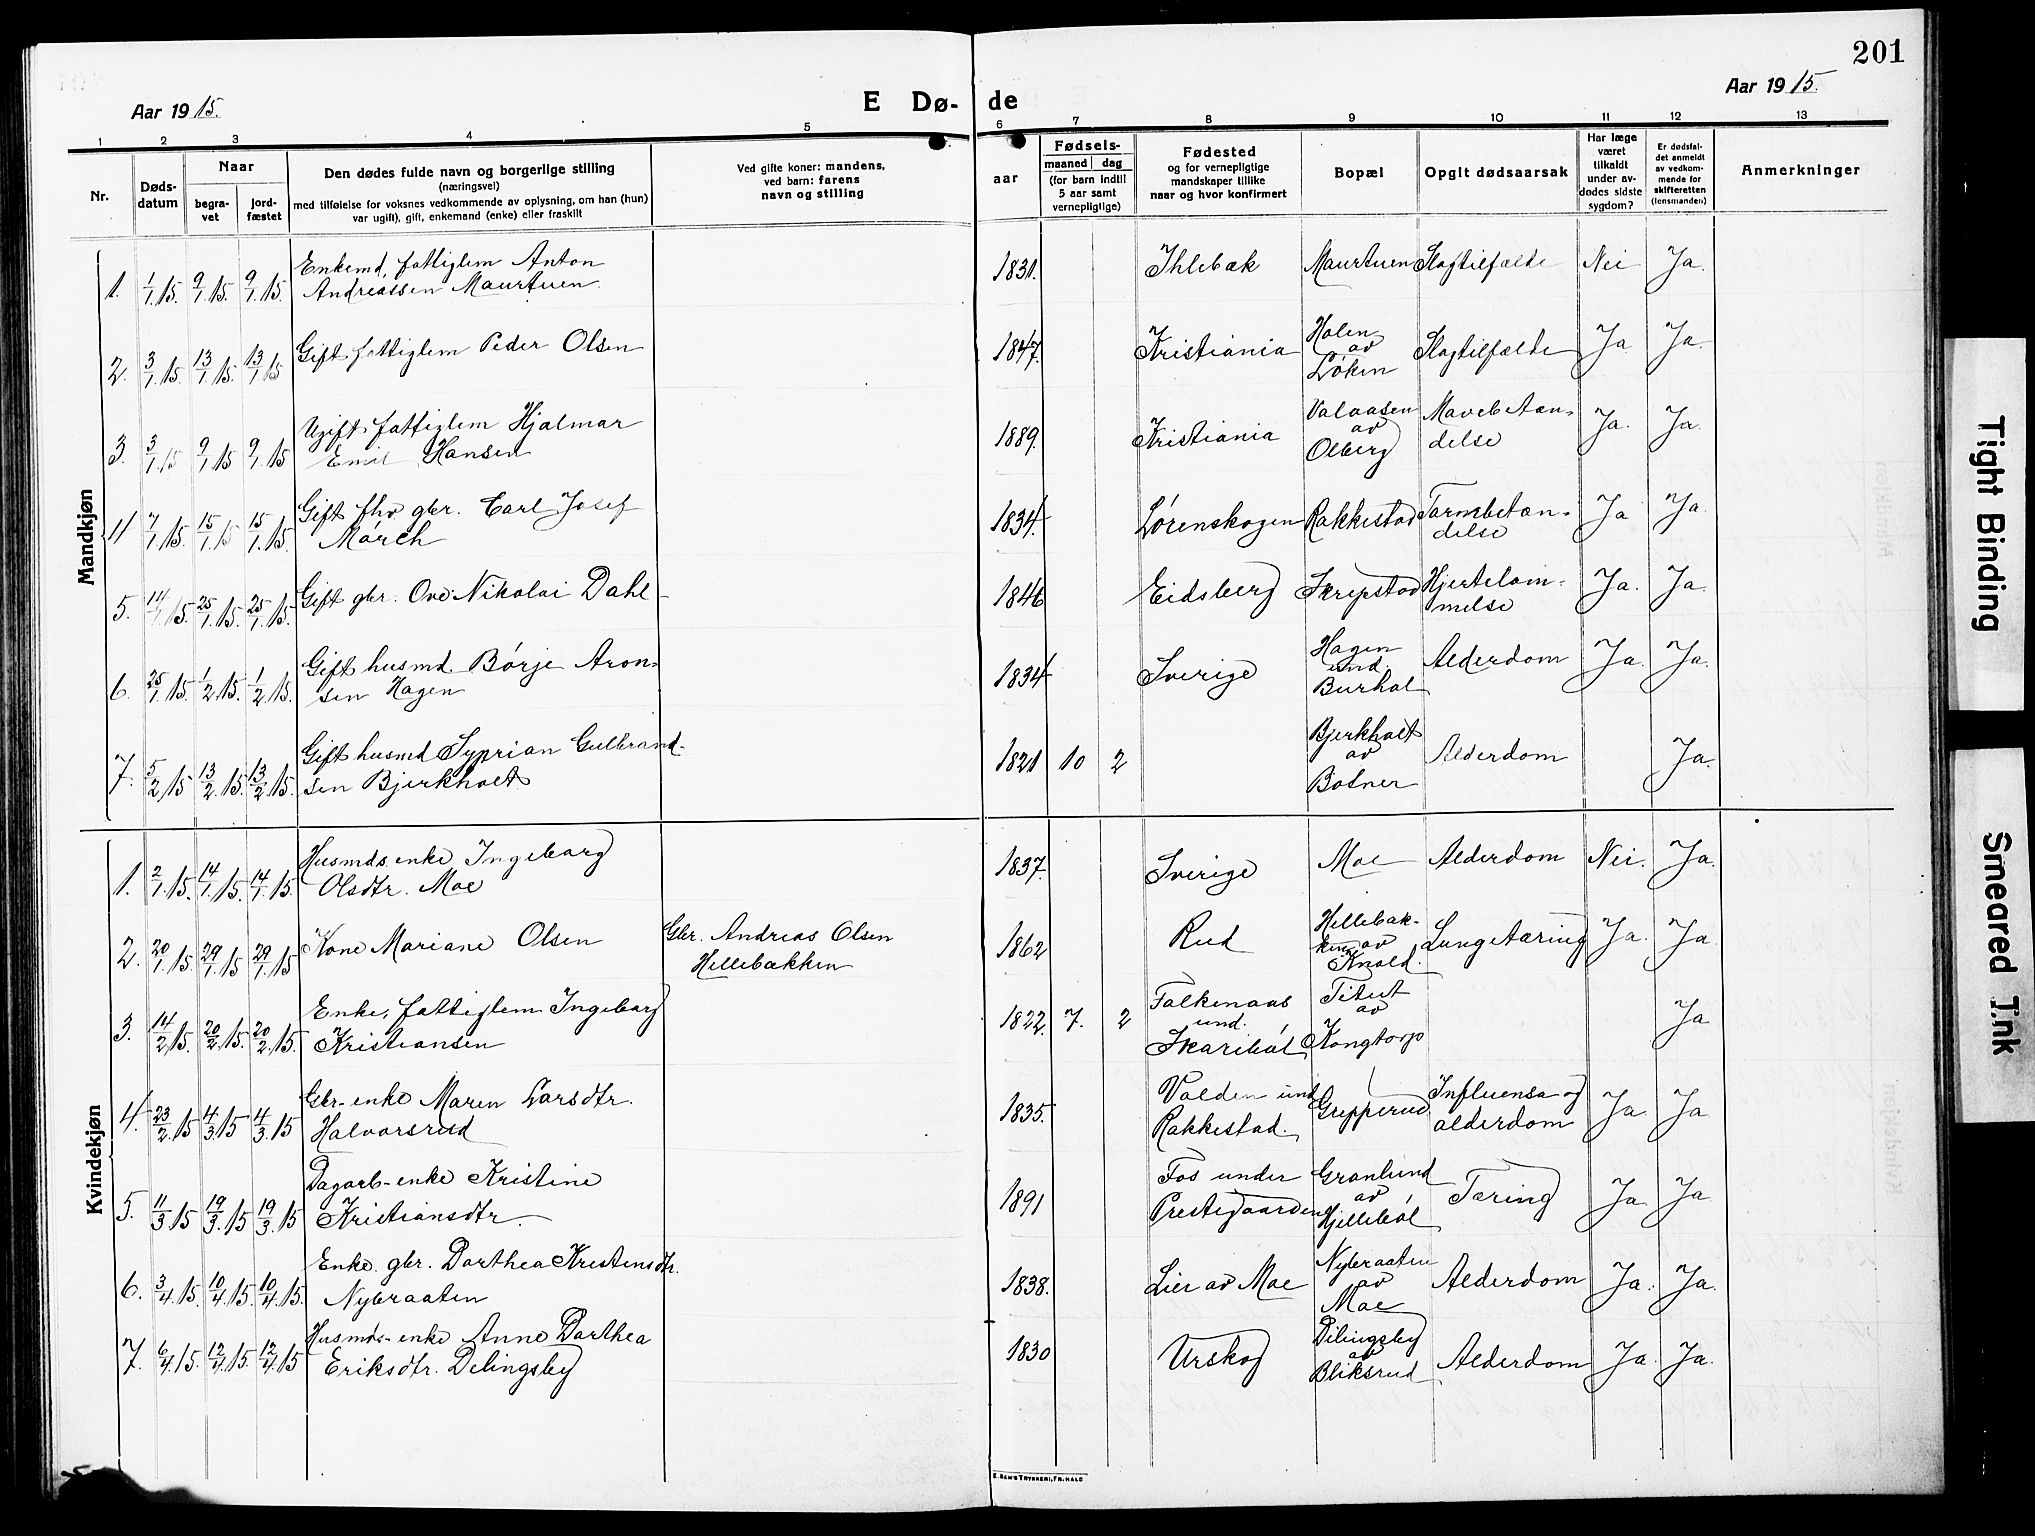 201
Aar 1915.
E Dø-
de
Aar 1915.
1 2 3 4 5 6 7 8 9 10 11 12 13
Nr.
Døds-
datum
Naar
begra-
vet
jord-
fæstet
Den dødes fulde navn og borgerlige stilling
(næringsvei)
med tilføielse for voksnes vedkommende av oplysning, om han (hun)
var ugift), gift, enkemand (enke) eller fraskilt
Ved gifte koner: mandens,
ved barn: farens
navn og stilling
aar
Fødsels-
maaned dag
(for barn indtil
5 aar samt
vernepligtige)
Fødested
og for vernepligtige
mandskaper tillike
naar og hvor konfirmert
Bopæl
Opgit dødsaarsak
Har læge
været
tilkaldt
under av-
dødes sidste
sygdom?
Er dødsfal-
det anmeldt
av vedkom-
mende for
skifteretten
(lensmanden)
Anmerkninger
Mandkjøn
1. 1/1.15. 9/1.15. 9/1.15. Enkemd, fattiglem Anton
Andreassen Maurtuen. 1831. Ihlebæk Maurtuen Slagtilfælde Nei Ja.
2. 3/1.15. 13/1.15. 13/1.15 Gift fattiglem Peder Olsen 1847. Kristiania Holen
av
Løken Slagtilfælde Ja Ja.
3. 3/1.15 9/1.15 9/1.15 Ugift fattiglem Hjalmar
Emil Hansen 1889. Kristiania Valaasen
av
Olberg Mavebetæn-
delse Ja. Ja.
4 7/1.15. 15/1.15 15/1.15. Gift fhv. gbr. Carl Josef
Mörch 1834. Lörenskogen Rakkestad Tarmbetæn-
delse Ja Ja.
5. 14/1.15. 25/1.15. 25/1.15. Gift gbr. Ove Nikolai Dahl- 1846 Eidsberg Skrepstad Hjertelam-
melse Ja. Ja.
6. 25/1.15. 1/2.15. 1/2.15. Gift husmd. Börje Aron-
sen Hagen 1834 Sverige Hagen
und.
Burhol Alderdom Ja. Ja.
7. 5/2.15 13/2.15. 13/2.15. Gift husmd Syprian Gulbrand-
sen Bjerkholt 1821 10 2 Bjerkholt
av
Botner Alderdom Ja.
Kvindekjøn
1. 2/1.15. 14/1.15. 14/1.15. Husmds.enke Ingeborg
Olsdtr. Moe 1837. Sverige Moe Alderdom Nei. Ja.
2. 20/1.15 29/1.15 29/1.15 Kone Mariane Olsen Gbr. Andreas Olsen
Hellebækken 1862 Rud Hellebæk-
ken av
Knold. Lungetæring Ja. Ja.
3. 14/2.15. 20/2.15. 20/2.15. Enke, fattiglem Ingeborg
Kristiansen 1822. 7. 2 Falkenaas
und.
Skaribøl Titut
av
Kongtorp Ja
4. 23/2.15 4/3.15 4/3.15 Gbr-enke Maren Larsdtr.
Halvorsrud 1835. Volden und
Rakkestad. Grepperud Influensa og
alderdom Ja Ja
5. 11/3.15 19/3.15 19/3.15 Dagarb-enke Kristine
Kristiansdtr. 1891 Fos under
Prestegaarden Granlund
av
Hjellebøl Tæring Ja Ja
6. 3/4.15. 10/4.15. 10/4.15. Enke. gbr. Dorthea Kristensdtr.
Nybraaten 1838. Lier av Moe Nybraaten
av
Moe Alderdom Ja. Ja.
7. 6/4.15. 12/4.15. 12/4.15 Husmds-enke Anne Dorthea
Eriksdtr. Delingsby 1830 Urskog Dilingsby
av
Bliksrud Alderdom Ja. Ja.
E. SEM'S TRYKKERI, FR.HALD
Tight Binding
Smeared I.nk